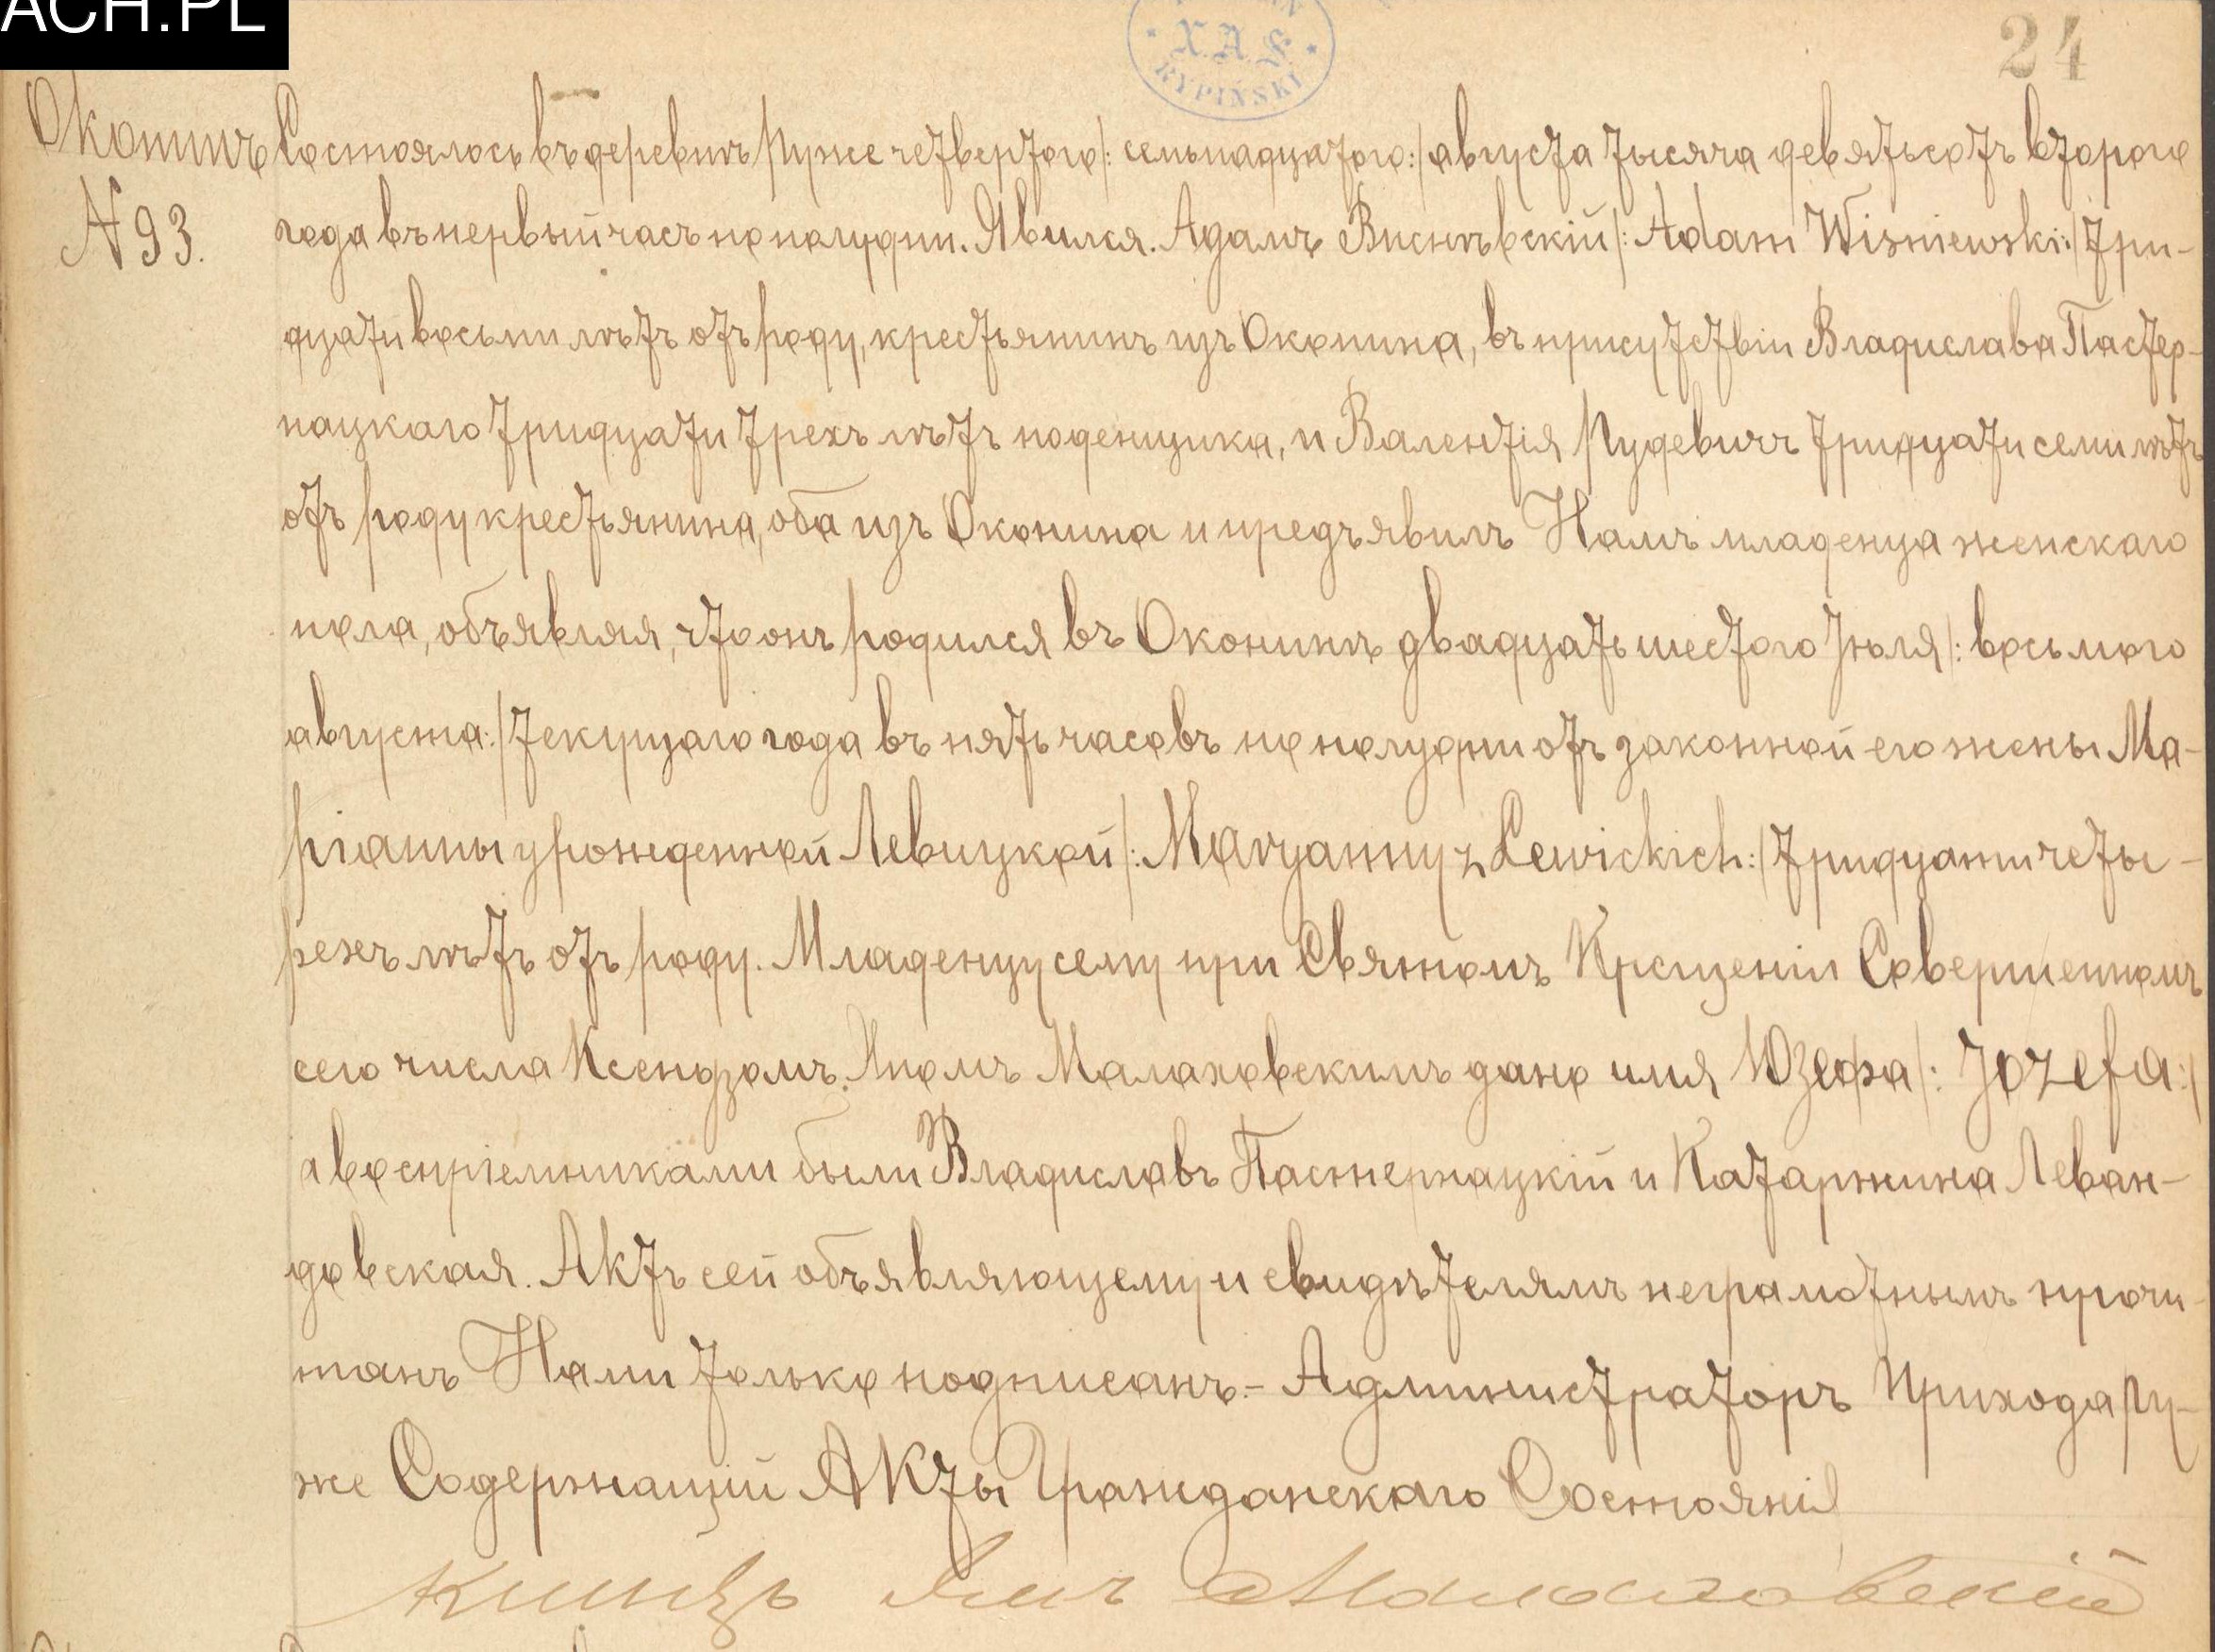 ACH.PL
X.A.S.
RYPIŃSKI
24
Оконинъ
N 93.
Состоялось въ деревнѣ Руже четвертого /: семьнадцатого :/ августа тысяча девятьсотъ второго
года въ первый часъ по полудни. Явился. Адамъ Виснѣвскій /: Adam Wisniewski :/ три-
дцати восьми лѣтъ отъ роду, крестьянинъ изъ Оконина, въ присутствіи Владислава Пастер-
нацкаго тридцати трехъ лѣтъ поденщика, и Валентія Рудевичъ тридцати семи лѣтъ
отъ роду крестьянина, оба изъ Оконина и предъявилъ Намъ младенца женскаго
пола, объявляя, что онъ родился въ Оконинѣ двадцать шестого Іюля /: восьмого
августа :/ текущаго года въ пять часовъ по полудни отъ законной его жены Ма-
ріанны урожденной Левицкой /: Maryanny z Lewickich :/ тридцати четы-
рехъ лѣтъ отъ роду. Младенцу сему при Святомъ Крещеніи Совершенномъ
сего числа Ксендзомъ Яномъ Малаховскимъ дано имя Юзефа /: Jozefa :/
а воспріемниками были Владиславъ Пастернацкій и Катаржина Леван-
довская. Актъ сей объявляющему и свидѣтелямъ неграмотнымъ прочи-
танъ Нами только подписанъ.- Администраторъ Прихода Ру-
же Содержащій Акты Гражданскаго Состоянія
Ксендзъ Янъ Малаховскій